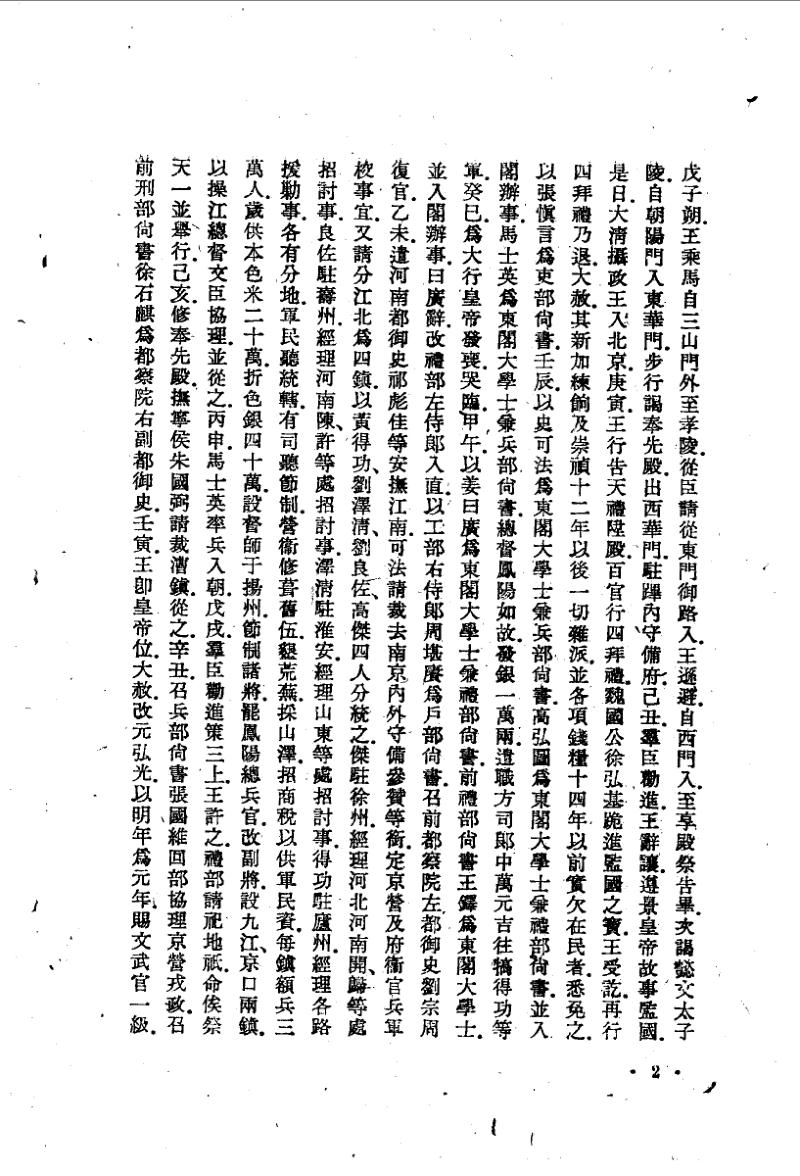 戊子朔．王乘馬自三山門外至孝陵．從臣請從東門御路入．王遜避．自西門入．至享殿祭告畢．次謁懿文太子
陵．自朝陽門入東華門．步行謁奉先殿．出西華門．駐蹕內守備府．己丑．羣臣勸進．王辭讓．遵景皇帝故事監國．
是日大清攝政王入北京．庚寅．王行告天禮．陞殿．百官行四拜禮．魏國公徐弘基跪進監國之寶．王受訖．再行
四拜禮乃退．大赦．其新加練餉及崇禎十二年以後一切雜派．並各項錢糧十四年以前實欠在民者．悉免之．
以張愼言爲吏部尙書．壬辰．以史可法爲東閣大學士兼兵部尙書．高弘圖爲東閣大學士兼禮部尙書．並入
閣辦事．馬士英爲東閣大學士兼兵部尙書．總督鳳陽如故．發銀一萬兩．遣職方司郞中萬元吉往犒得功等
軍．癸巳．爲大行皇帝發喪．哭臨．甲午．以姜曰廣爲東閣大學士兼禮部尙書．前禮部尙書王鐸爲東閣大學士．
並入閣辦事．曰廣辭．改禮部左侍郞入直．以工部右侍郞周堪賡爲戶部尙書．召前都察院左都御史劉宗周
復官．乙未．遣河南都御史祁彪佳等安撫江南．可法請裁去南京內外守備參贊等銜．定京營及府衞官兵軍
校事宜．又請分江北爲四鎭．以黃得功、劉澤淸、劉良佐、高傑四人分統之．傑駐徐州．經理河北河南開、歸等處
招討事．良佐駐壽州．經理河南陳、許等處招討事．澤淸駐淮安．經理山東等處招討事．得功駐廬州．經理各路
援勦事．各有分地．軍民聽統轄．有司聽節制．營衞修葺舊伍．墾荒蕪．採山澤．招商稅以供軍民資．每鎭額兵三
萬人．歲供本色米二十萬．折色銀四十萬．設督師于揚州．節制諸將．罷鳳陽總兵官．改副將．設九江、京口兩鎭．
以操江總督文臣協理．並從之．丙申．馬士英率兵入朝．戊戌．羣臣勸進．策三上．王許之．禮部請祀地祇．命俟祭
天一並舉行．己亥．修奉先殿．撫寧侯朱國弼請裁漕鎭．從之．辛丑．召兵部尙書張國維回部．協理京營戎政．召
前刑部尙書徐石麒爲都察院右副都御史．壬寅．王卽皇帝位．大赦．改元弘光．以明年爲元年．賜文武官一級．
• 2 •